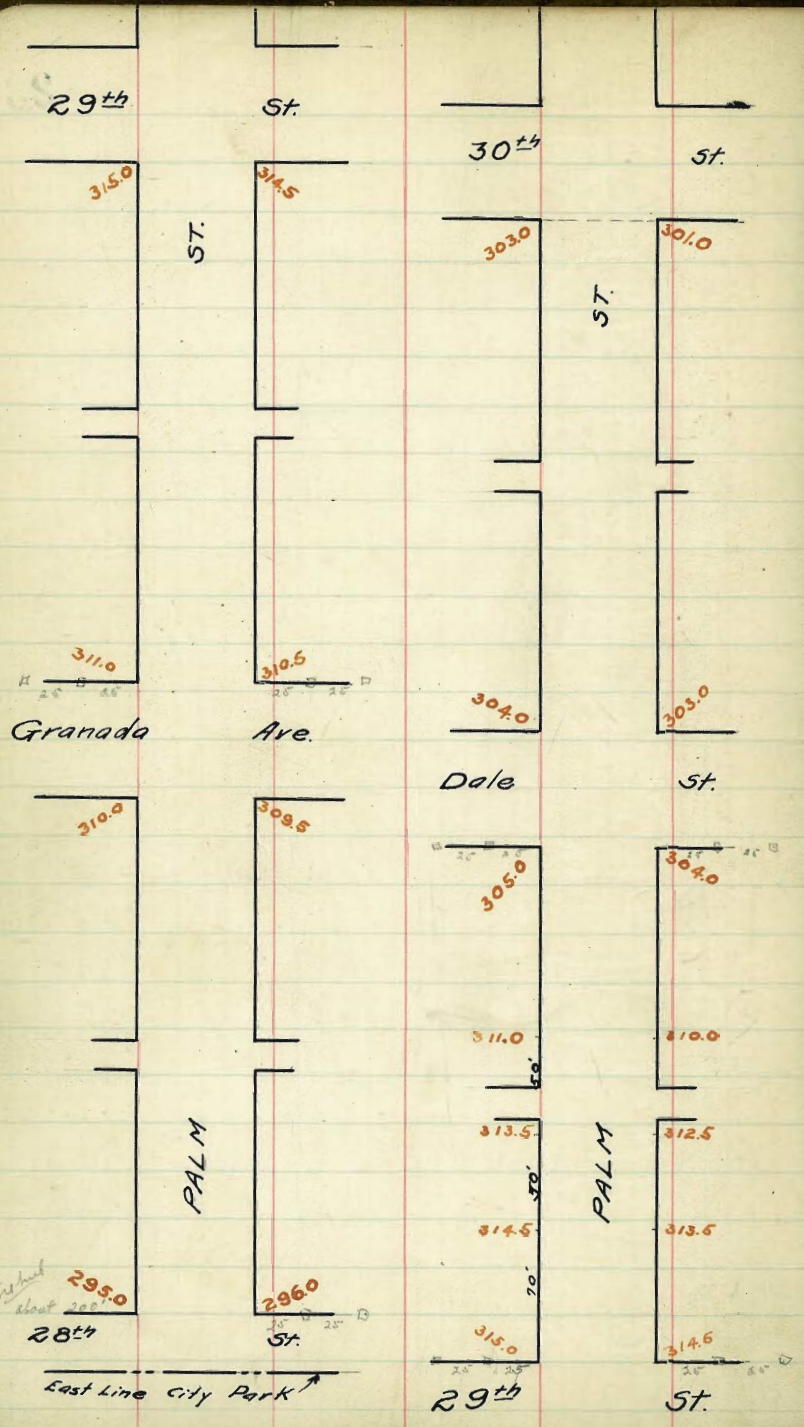 29th St.
315.0 314.5
ST.
311.0 310.5
25 25 25 25
Granada Ave.
310.0 309.5
PALM
295.0 296.0
about 200'
25 25
28th St.
East Line City Park
30th St.
303.0 301.0
ST.
304.0 303.0
Dale St.
25 25 25 25
305.0 304.0
311.0 310.0
50'
313.5 312.5
50'
PALM
314.5 313.5
70'
315.0 314.5
25 25 25 25
29th St.